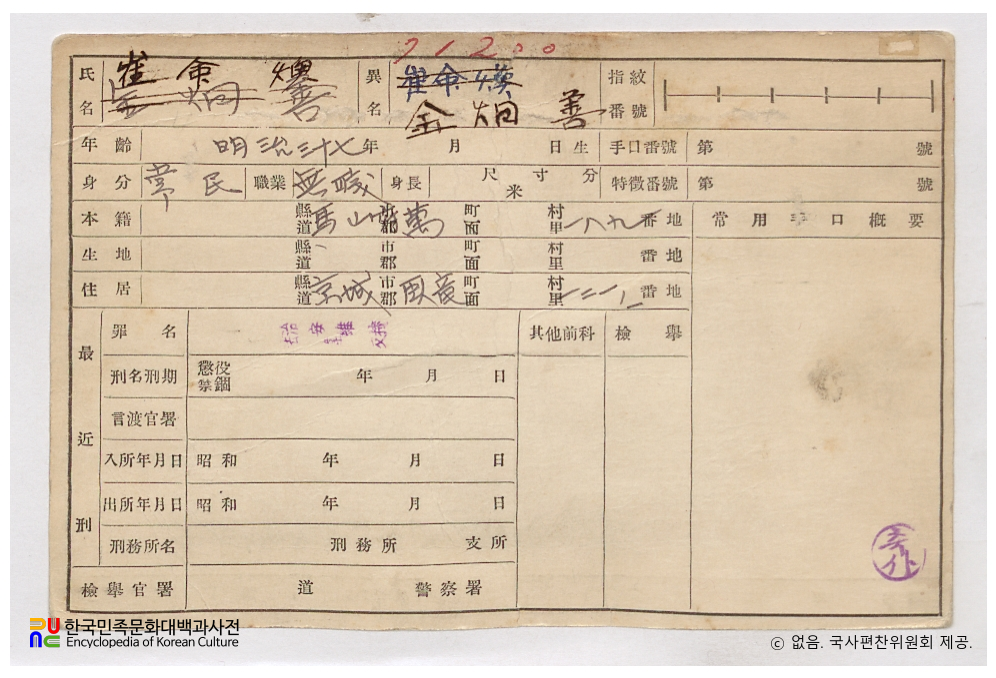 71200
氏名 崔命煥 金炯善 異名 崔命煥 金炯善 指紋番號
年齡 明治三十七年 月 日生 手口番號 第 號
身分 常民 職業 無職 身長 尺 寸 分 米 特徵番號 第 號
本籍 縣道 馬山 市郡 萬 町面 村里 一八九 番地 常用手口概要
生地 縣道 市郡 町面 村里 番地
住居 縣道 京城 市郡 町面 村里 番地
最近刑 罪名 治安維持 其他前科 檢擧
刑名刑期 懲役 禁錮 年 月 日
言渡官署
入所年月日 昭和 年 月 日
出所年月日 昭和 年 月 日
刑務所名 刑務所 支所
檢擧官署 道 警察署
한국민족문화대백과사전
Encyclopedia of Korean Culture
ⓒ 없음. 국사편찬위원회 제공.